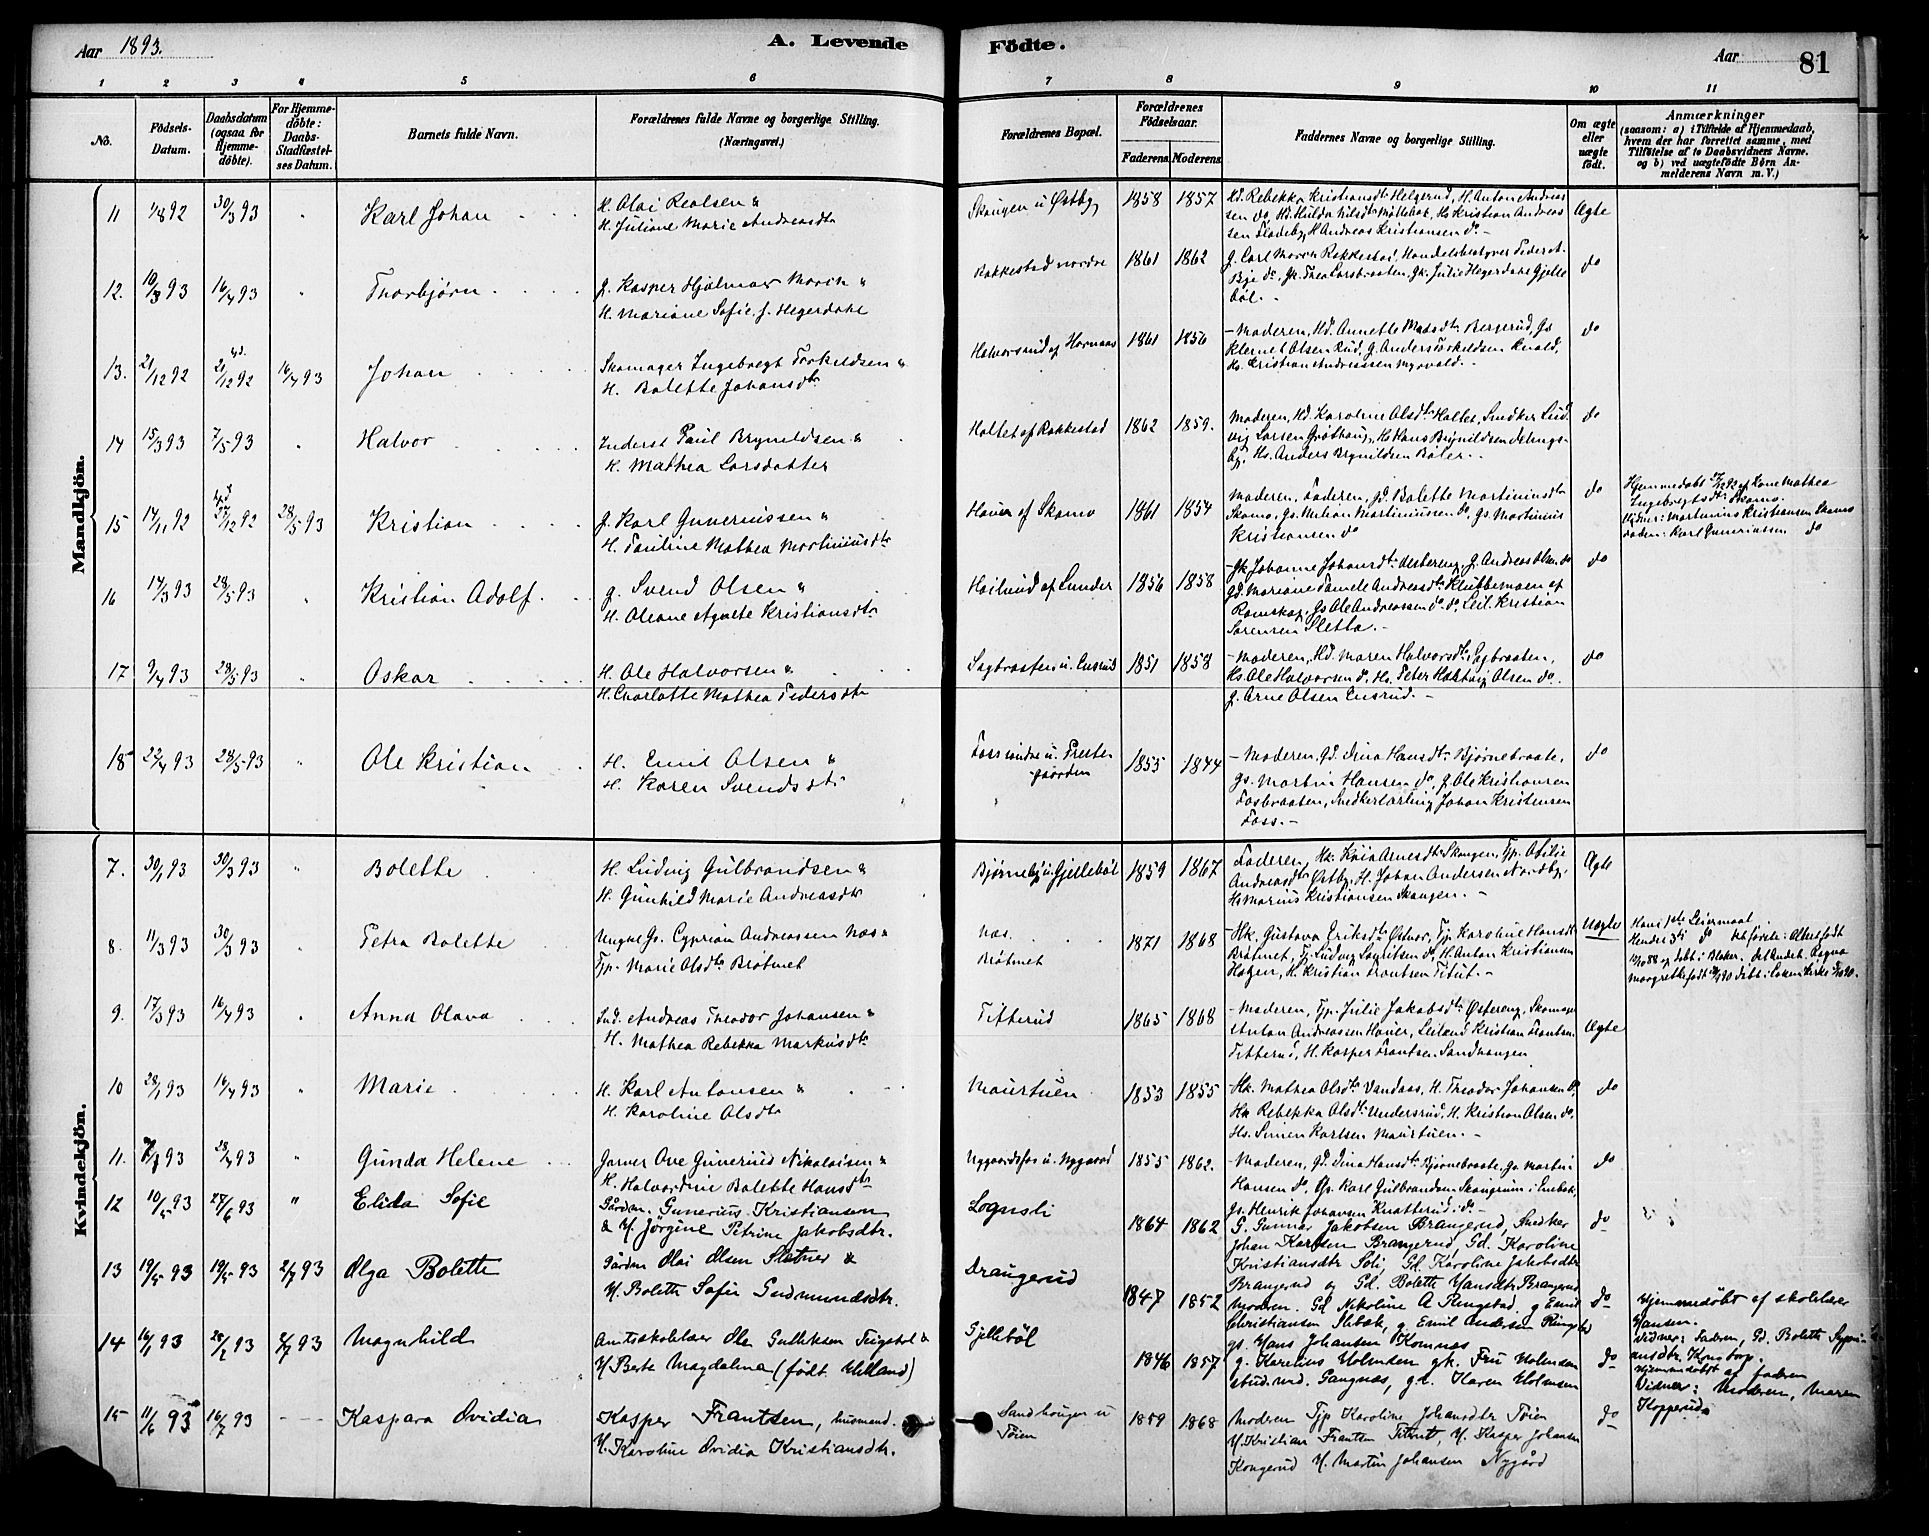 Aar 1893.
A. Levende
Födte.
Aar
81
1 2 3 4 5 6 7 8 9 10 11
No.
Födsels-Datum.
Daabsdatum (ogsaa for Hjemme-döbte).
For Hjemme-döbte: Daabs-Stadfæstel-ses Datum.
Barnets fulde Navn.
Forældrenes fulde Navne og borgerlige Stilling. (Næringsvei.)
Forældrenes Bopæl.
Forældrenes Födselsaar.
Faderens. Moderens.
Faddernes Navne og borgerlige Stilling.
Om ægte eller uægte födt.
Anmærkninger
(saasom: a) i Tilfælde af Hjemmedaab, hvem der har forrettet samme, med Tilföielse af to Daabsvidners Navne. og b) ved uægtefödte Börn Anmelderens Navn m. V.)
Mandkjön.
11 1/8 92 30/3 93 " Karl Johan
H. Olai Realsen &
H. Juliane Marie Andreasdtr
Skougen u Østby 1858 1857
Hd. Rebekka Kristiansdtr Helgerud, H. Anton Andreas
sen do, Hd. Hilda Nilsdtr Møllebak, Hs Kristian Andreas
sen Fladeby, H Andreas Kristiansen do. -
Ægte
12. 10/3 93 16/4 93 " Thorbjørn
g. Kasper Hjalmar Moren &
H. Mariane Sofie f. Hegerdahl
Rakkestad nordre 1861 1862
g. Carl Moren Rakkestad, Handelsbestyrer Peder A.
Bye do, Gk. Thea Larsbraaten, Gk. Julie Hegerdahl Gjelle
bøl. -
do
13. 21/12 92 21/12 92 16/4 93 Johan
Skomager Ingebregt Torkildsen &
H. Bolette Johansdtr
Halvorsrud af Hornaas 1861 1856
- Moderen, Hd. Annette Madsdtr Bergerud, Gs
Klemet Olsen Rud, G. Anders Torkildsen
Hs. Kristian Andreassen Myrvold. -
do
14 15/3 93 7/5 93 " Halvor
Inderst Paul Brynildsen &
H. Mathea Larsdatter
Holtet af Rakkestad 1862 1859.
Moderen, Hd. Karoline Olsdtr Holtet, Snedker Lud
vig Larsen Grøthaug, Hs Hans Brynildsen
by, Hs. Anders Brynildsen Bøler. -
do
15 14/11 92 27/12 92 28/5 93 Kristian
g. Karl Gunerussen &
H. Pauline Mathea Martiniusdtr
Houer af Skamo 1861 1854
Moderen, Faderen, Gd. Bolette Martiniusdtr
Skamo, Gs. Milian Martiniussen do, Gs. Martinius
Kristiansen do
do
Hjemmedøbt 27/12 92 af Kone Mathea
Ingebregtsdtr Skamo.
Vidner: Martinius Kristiansen Skamo
Faderen: Karl Gunerussen do
16 14/3 93 28/5 93 " Kristian Adolf
g. Svend Olsen &
H. Oleane Agnete Kristiansdtr
Høilund af Lunder 1856 1858
Gk Johanne Johansdtr Østereng, G. Andreas Olsen do
Gd. Mariane Pamele Andreasdtr Klubbemoen af
Romskog, Gs Ole Andreassen do do, Leil. Kristian
Sørensen Sletta. -
do
17 9/4 93 28/5 93 " Oskar
H. Ole Halvorsen &
H. Charlotte Mathea Pedersdtr
Sagbraaten u. Ensrud 1851 1858
- Moderen, Hd. Maren Halvorsdtr Sagbraaten,
Hs. Ole Halvorsen do, Hs. Peter Hartvig Olsen do.
g. Arne Olsen Ensrud. -
do
18 22/4 93 28/5 93 " Ole Kristian
H. Emil Olsen &
H. Karen Svendsdtr
Foss under u. Preste-
gaarden 1855 1844
- Moderen, Gd. Dina Hansdtr Bjørnebraate,
Gs. Martin Hansen do, g. Ole Kristiansen
Fosbraaten, Snedkerlærling Johan Kristensen
Foss. -
do
Kvindekjön.
7. 30/1 93 30/3 93 " Bolette
H. Ludvig Gulbrandsen &
H. Gunhild Marie Andreasdtr
Bjørneby u Gjellebøl 1859 1867
Faderen, Hk. Kaia Arnesdtr Skougen, Tp. Otilie
Andreasdtr Østby, H. Johan Andersen Nordby,
Hs Marius Kristiansen Skaugen. -
Ægte
8. 11/3 93 30/3 93 " Petra Bolette
Ungk Gs. Cyprian Andreassen Næs &
Tp. Marie Olsdtr Brøtmet
Næs.
Brøtmet 1871 1868
- Hk. Gustava Eriksdtr Østvor, Tp. Karoline Hansdtr
Brøtmet, Tj. Ludvig Lauritsen do, H. Anton Kristiansen
Hagen, H. Kristian Frantsen Titut. -
Uægte
Hans 1ste Leiermaal.
Hendes 3die do Det første: Albert født
og døbt i Blaker. Det Andet: Ragna
Margrethe født døbt i Løken Kirke
9. 17/3 93 16/4 93 " Anna Olava
Ind. Andreas Theodor Johansen &
H. Mathea Rebekka Markusdtr
Titterud 1865 1868
- Moderen, Tp. Julie Jakobsdtr Østereng, Skomager
Anton Andreassen Houer, Leilænd Kristian Frantsen
Titterud, H. Kasper Frantsen Sandhaugen
Ægte
10 28/1 93 16/4 93 " Marie
H. Karl Antonsen &
H. Karoline Olsdtr
Maurtuen 1853 1855
- Hk. Mathea Olsdtr Vandaas, H. Theodor Johansen do,
Hk Rebekka Olsdtr Undersrud, H. Kristian Olsen do,
Hs. Simen Karlsen Maurtuen. -
do
11. 93 28/4 93 " Gunda Helene
Garver Ove Gunerius Nikolaisen &
H. Halvordine Bolette Hansdtr
Nygaardsfos u. Nygaard 1855 1862.
- Moderen, Gd. Dina Hansdtr Bjørnebraate, Gs. Martin
Hansen do, Gs. Karl Gulbrandsen Skangrum i Enebak,
Gs. Henrik Johansen Knatterud i do. -
do
12 10/5 93 27/6 93 " Elida Sofie
Gårdm. Gunerius Kristiansen
& H. Jörgine Petrine Jakobsdtr.
Lognsli 1864 1862
G. Gunnar Jakobsen Brangerud, Snedker
Johan Karlsen Brangerud, Gd. Karoline
Kristiansdtr Soli, Gd. Karoline Jakobsdtr
Brangerud og Gd. Bolette Hansdtr Brangerud
do
13 19/5 93 19/5 93 2/7 93 Olga Bolette
Gårdm Olai Olsen Sletner &
H. Bolette Sofie Gudmundsdtr.
Drangerud 1847 1852
Moderen. Gd Nikoline A Ringstad, g Emil
Christiansen Slibæk, g Emil Andersen Ringstad
gs. Hans Johansen Komnæs
do
Hjemmedøbt af skolelærer
Hansen.
Vidner: Faderen, Gd. Bolette Sypri-
ansdtr. Konstorp.
14 16/1 93 28/2 93 2/7 93 Magnhild
Amtsskolelær Ole Gulliksen Teigstol &
H Berte Magdalena (født Helland)
Gjellebøl 1846 1857
g. Karelius Holmsen gk. Fru Holmsen
stud. med. Gangnæs, gd. Karen Holmsen
do
Hjemmedøbt af faderen
Vidner: Moderen, Maren
Kopperud.
15 11/6 93 16/7 93 - - - Kaspara Ovidia
Kasper Frantsen, husmand. &
H. Karoline Ovidia Kristiansdtr.
Sandhaugen u
Töien 1859 1868
Moderen Tjp Karoline Johansdtr Töien
H. Kristian Frantsen Titrut, H. Kasper Johansen
Kongerud H. Martin Johansen Nygård
do